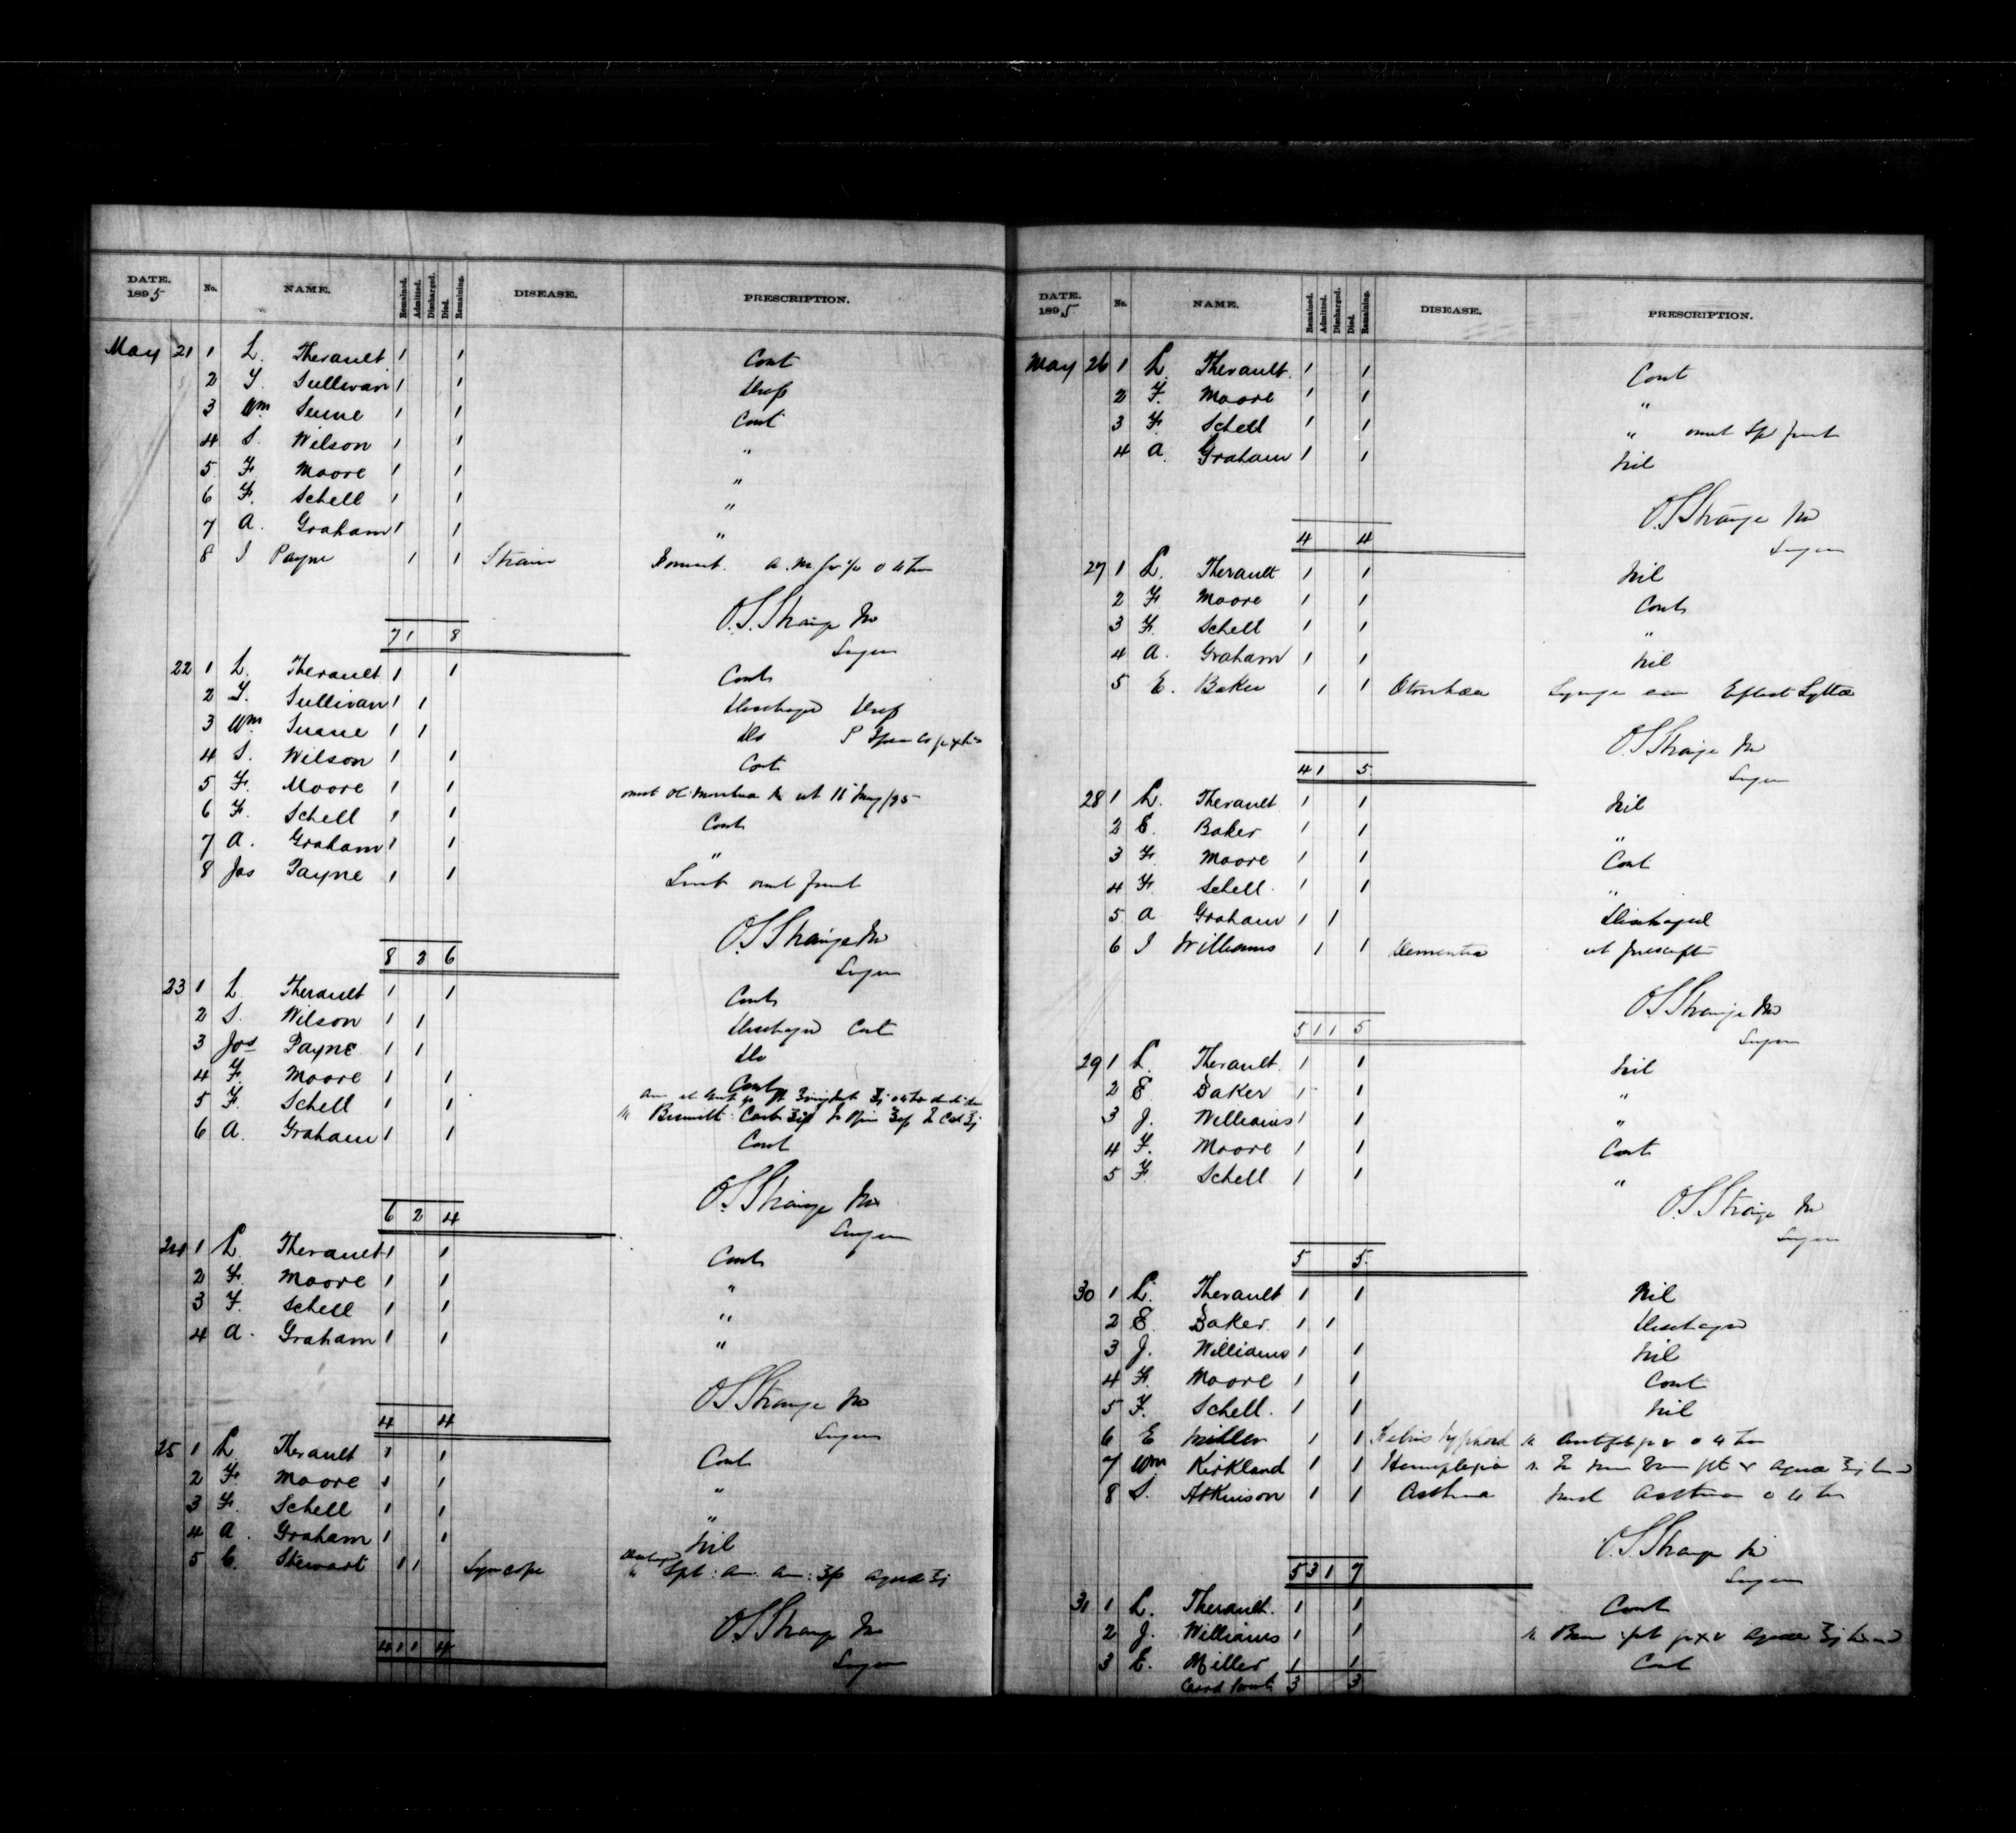 DATE. 1895 No. NAME. Remained. Admitted. Discharged. Died. Remaining. DISEASE. PRESCRIPTION.
May 21 1 L. Therault 1 1 Cont
2 T. Sullivan 1 1
3 Wm 1 1 Cont
4 S. Wilson 1 1 "
5 F. Moore 1 1 "
6 F. Schell 1 1 "
7 A. Graham 1 1 "
8 J Payne 1 1 Strain
O.S. Strange MD
7 1 8
Surgeon
22 1 L. Therault 1 1 Cont
2 T. Sullivan 1 1 Discharged
3 Wm 1 1 Do
4 S. Wilson 1 1 Cont
5 F. Moore 1 1 omit
6 F. Schell 1 1 Cont
7 A. Graham 1 1 "
8 Jas Payne 1 1
O.S. Strange MD
8 2 6
Surgeon
23 1 L. Therault 1 1 Cont
2 S. Wilson 1 1 Discharged Cont
3 Jos Payne 1 1 Do
4 F. Moore 1 1 Cont
5 F. Schell 1 1
6 A. Graham 1 1 Cont
O.S. Strange MD
6 2 4
Surgeon
24 1 L. Therault 1 1 Cont
2 F. Moore 1 1 "
3 F. Schell 1 1 "
4 A. Graham 1 1 "
O.S. Strange MD
4 4
Surgeon
25 1 L Therault 1 1 Cont
2 F. Moore 1 1 "
3 F. Schell 1 1 "
4 A. Graham 1 1 Nil
5 C. Stewart 1 1 Syncope Discharged
O.S. Strange MD
4 1 1 4
Surgeon
DATE. 1895 No. NAME. Remained. Admitted. Discharged. Died. Remaining. DISEASE. PRESCRIPTION.
May 26 1 L. Therault 1 1 Cont
2 F. Moore 1 1 "
3 F. Schell 1 1 " omit
4 A. Graham 1 1 Nil
O.S. Strange MD
4 4
Surgeon
27 1 L. Therault 1 1 Nil
2 F. Moore 1 1 Cont
3 F. Schell 1 1 "
4 A. Graham 1 1 Nil
5 E. Baker 1 1 Otorrhoea Syringe ear
O.S. Strange MD
4 1 5
Surgeon
28 1 L. Therault 1 1 Nil
2 E. Baker 1 1 "
3 F. Moore 1 1 Cont
4 F. Schell 1 1 "
5 A Graham 1 1 Discharged
6 J Williams 1 1 Dementia
O.S. Strange MD
5 1 1 5
Surgeon
29 1 L. Therault 1 1 Nil
2 E Baker 1 1 "
3 J. Williams 1 1 "
4 F. Moore 1 1 Cont
5 F. Schell 1 1 "
O.S. Strange MD
Surgeon
5 5
30 1 L. Therault 1 1 Nil
2 E. Baker 1 1 Discharged
3 J. Williams 1 1 Nil
4 F. Moore 1 1 Cont
5 F. Schell 1 1 Nil
6 E Miller 1 1 Febris typhoid
7 Wm Kirkland 1 1 Hemiplegia
8 S. Atkinson 1 1 Asthma
O.S. Strange MD
5 3 1 7
Surgeon
31 1 L. Therault 1 1 Cont
2 J. Williams 1 1
3 E. Miller 1 1 Cont
Card forwd 3 3